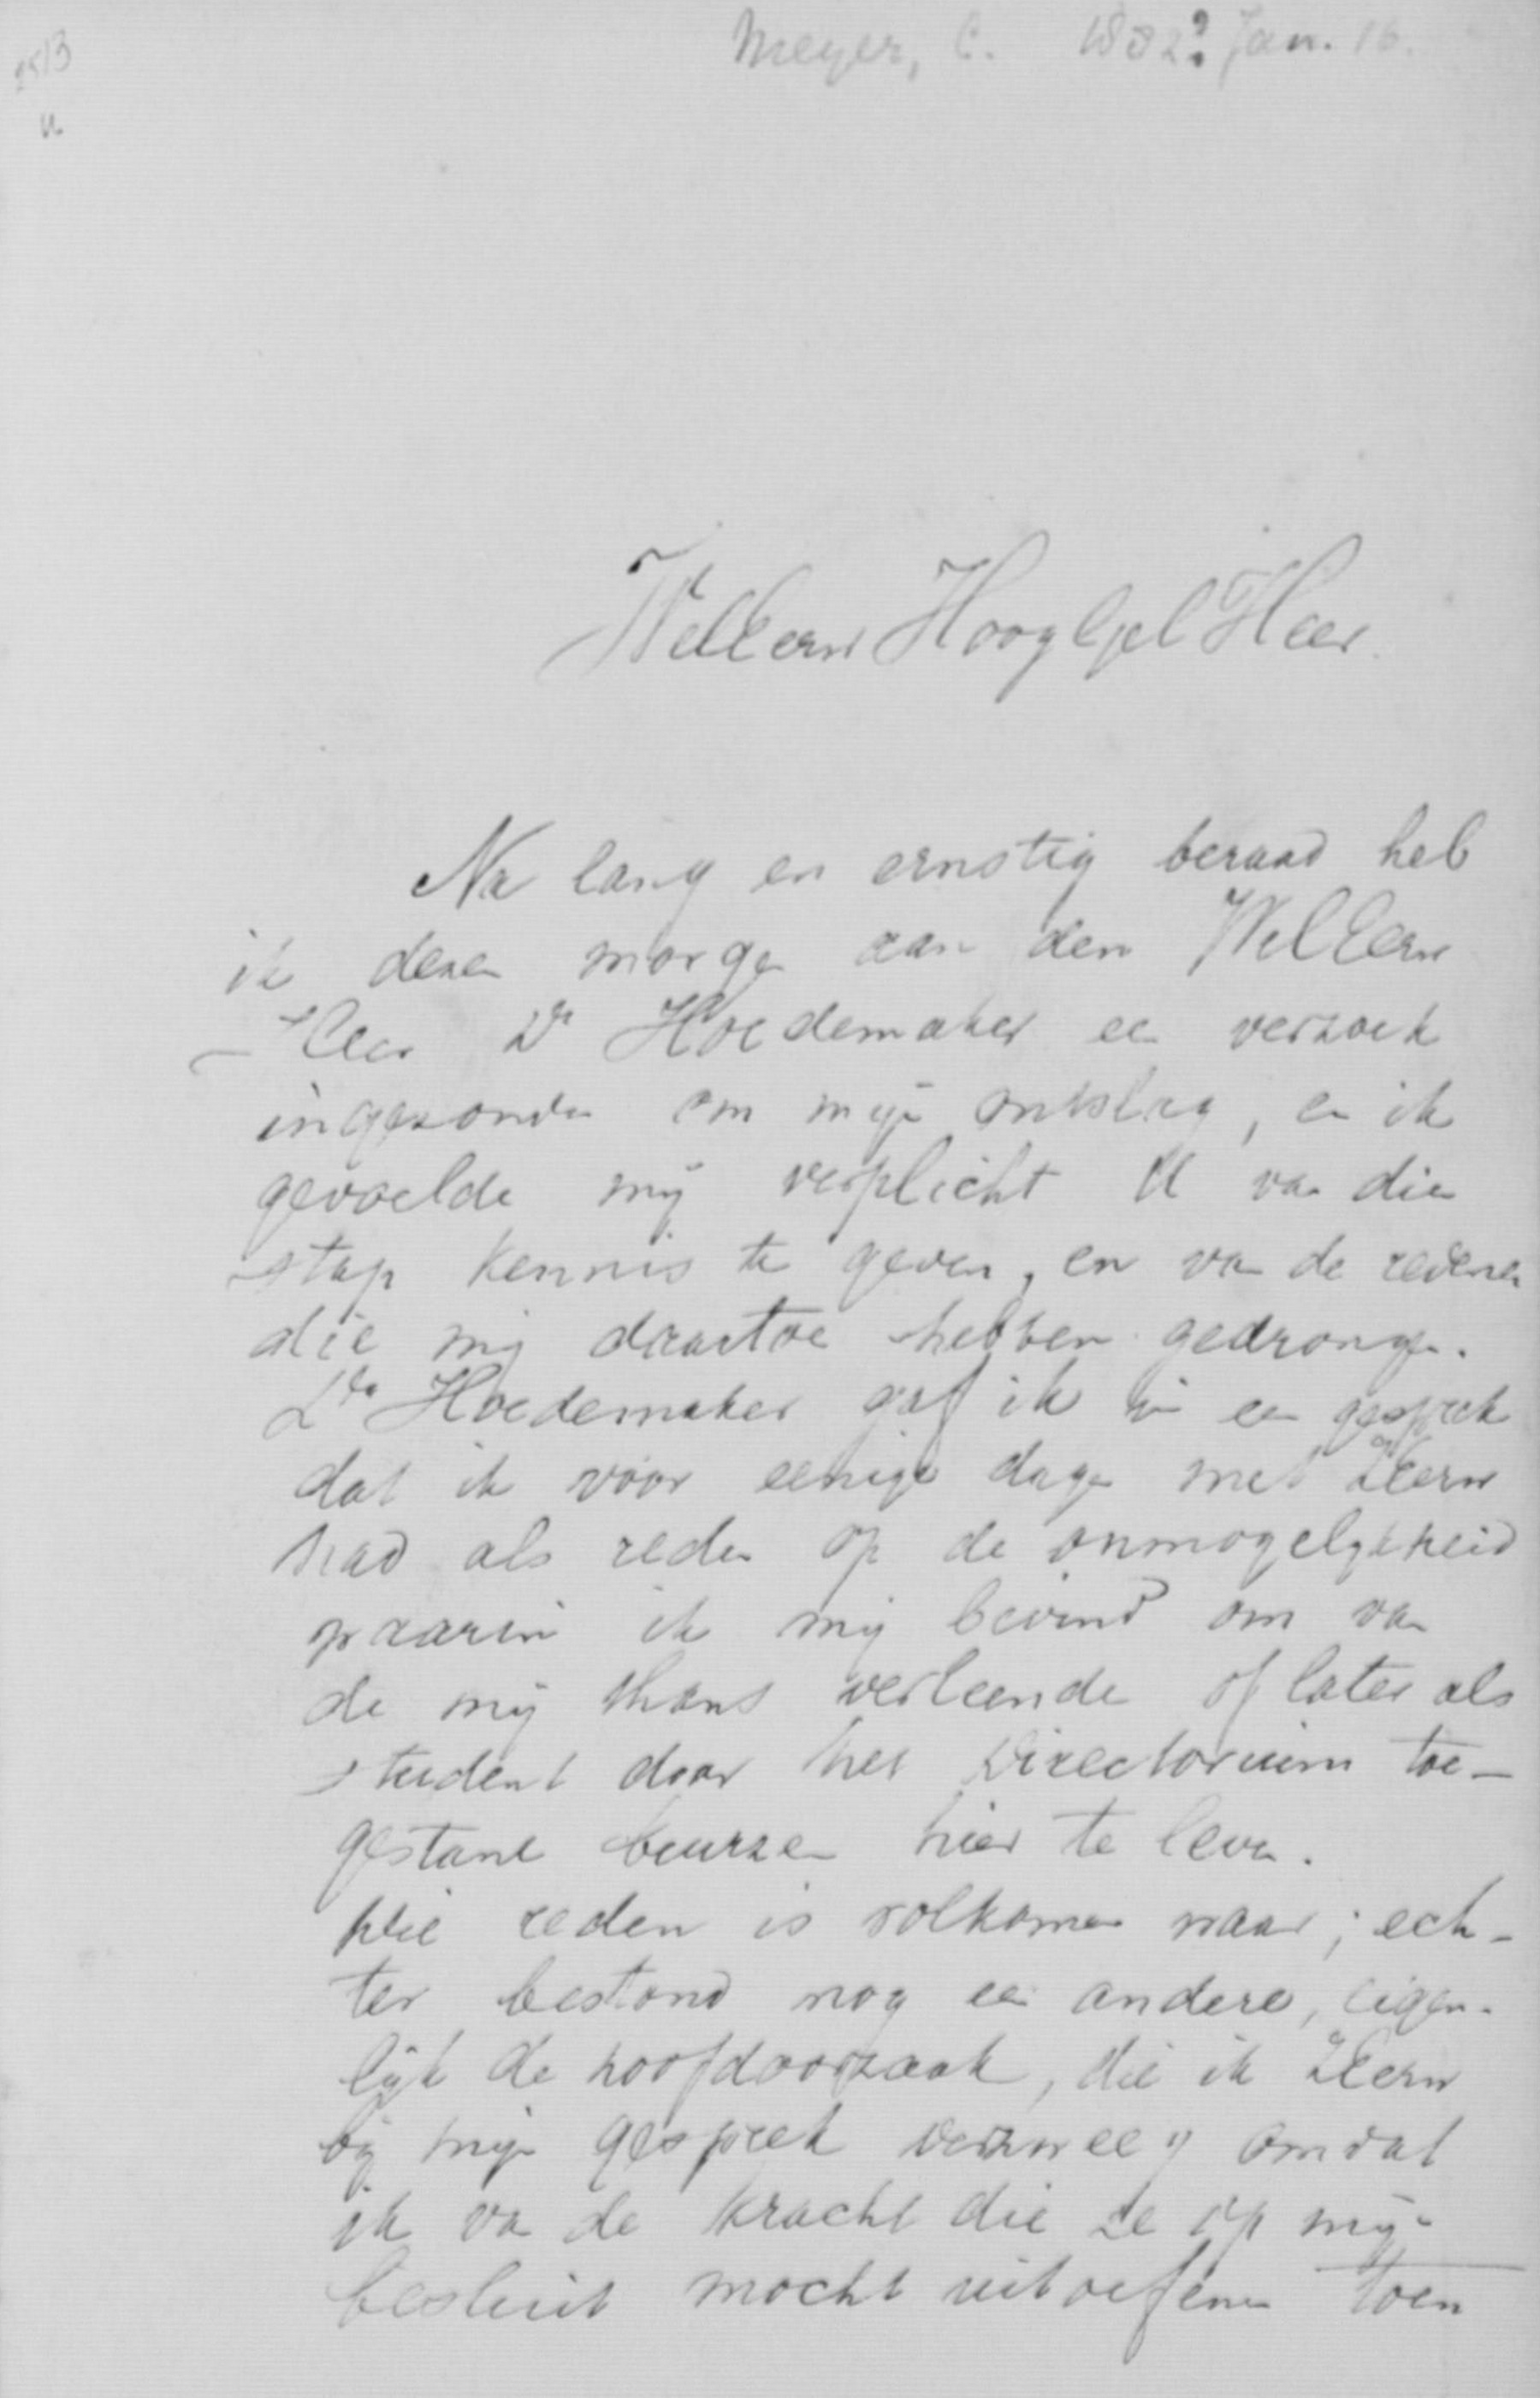 2513
Meyer, C. 1882? Jan. 16.
u
WelEerw HooglGel Heer.
Na lang en ernstig beraad heb
ik dezen morge aan den WelEerw
Heer Dr Hoedemaker een verzoek
ingezonden om mijn ontslag, en ik
gevoelde mij verplicht U van dien
stap kennis te geven, en van de redenen
die mij daartoe hebben gedrongen.
Dr Hoedemaker gaf ik in een gesprek
dat ik voor eenige dagen met ZEerw
had als reden op de onmogelykheid
waarin ik mij bevind om van
de mij thans verleende of later als
student door het Directorium toe-
gestane beurzen hier te leven.
Die reden is volkomen waar; ech-
ter bestond nog een andere, eigen-
lijk de hoofdoorzaak, die ik ZEerw
bij mijn gesprek verzweeg omdat
ik van de kracht die ze op mijn
besluit mocht uitoefenen toen